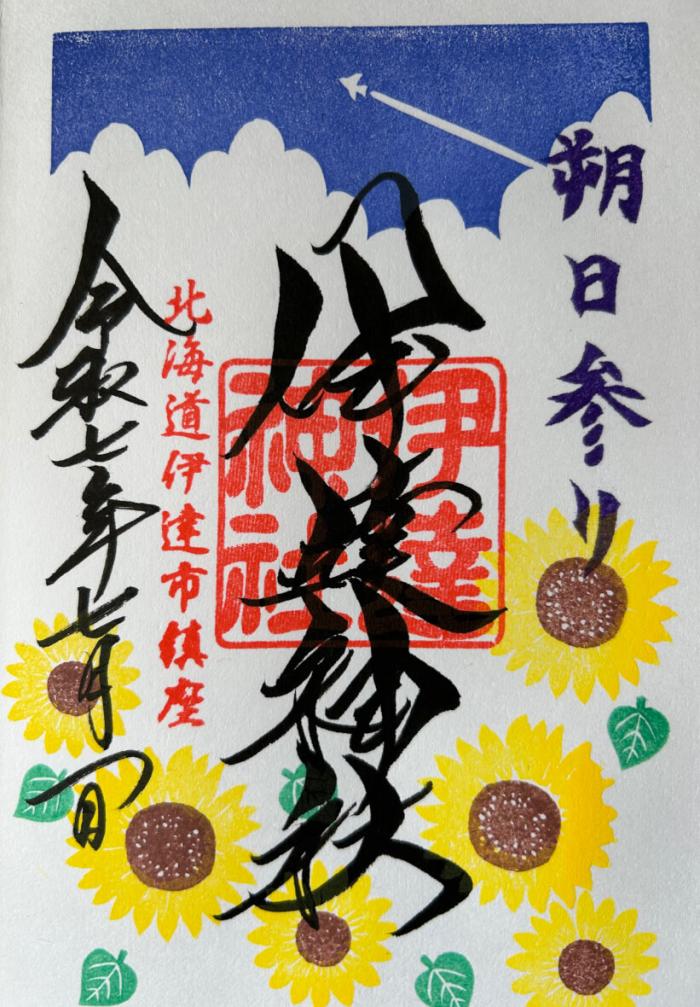 朔日参り
伊達神社
伊達
神社
北海道伊達市鎮座
令和七年七月一日